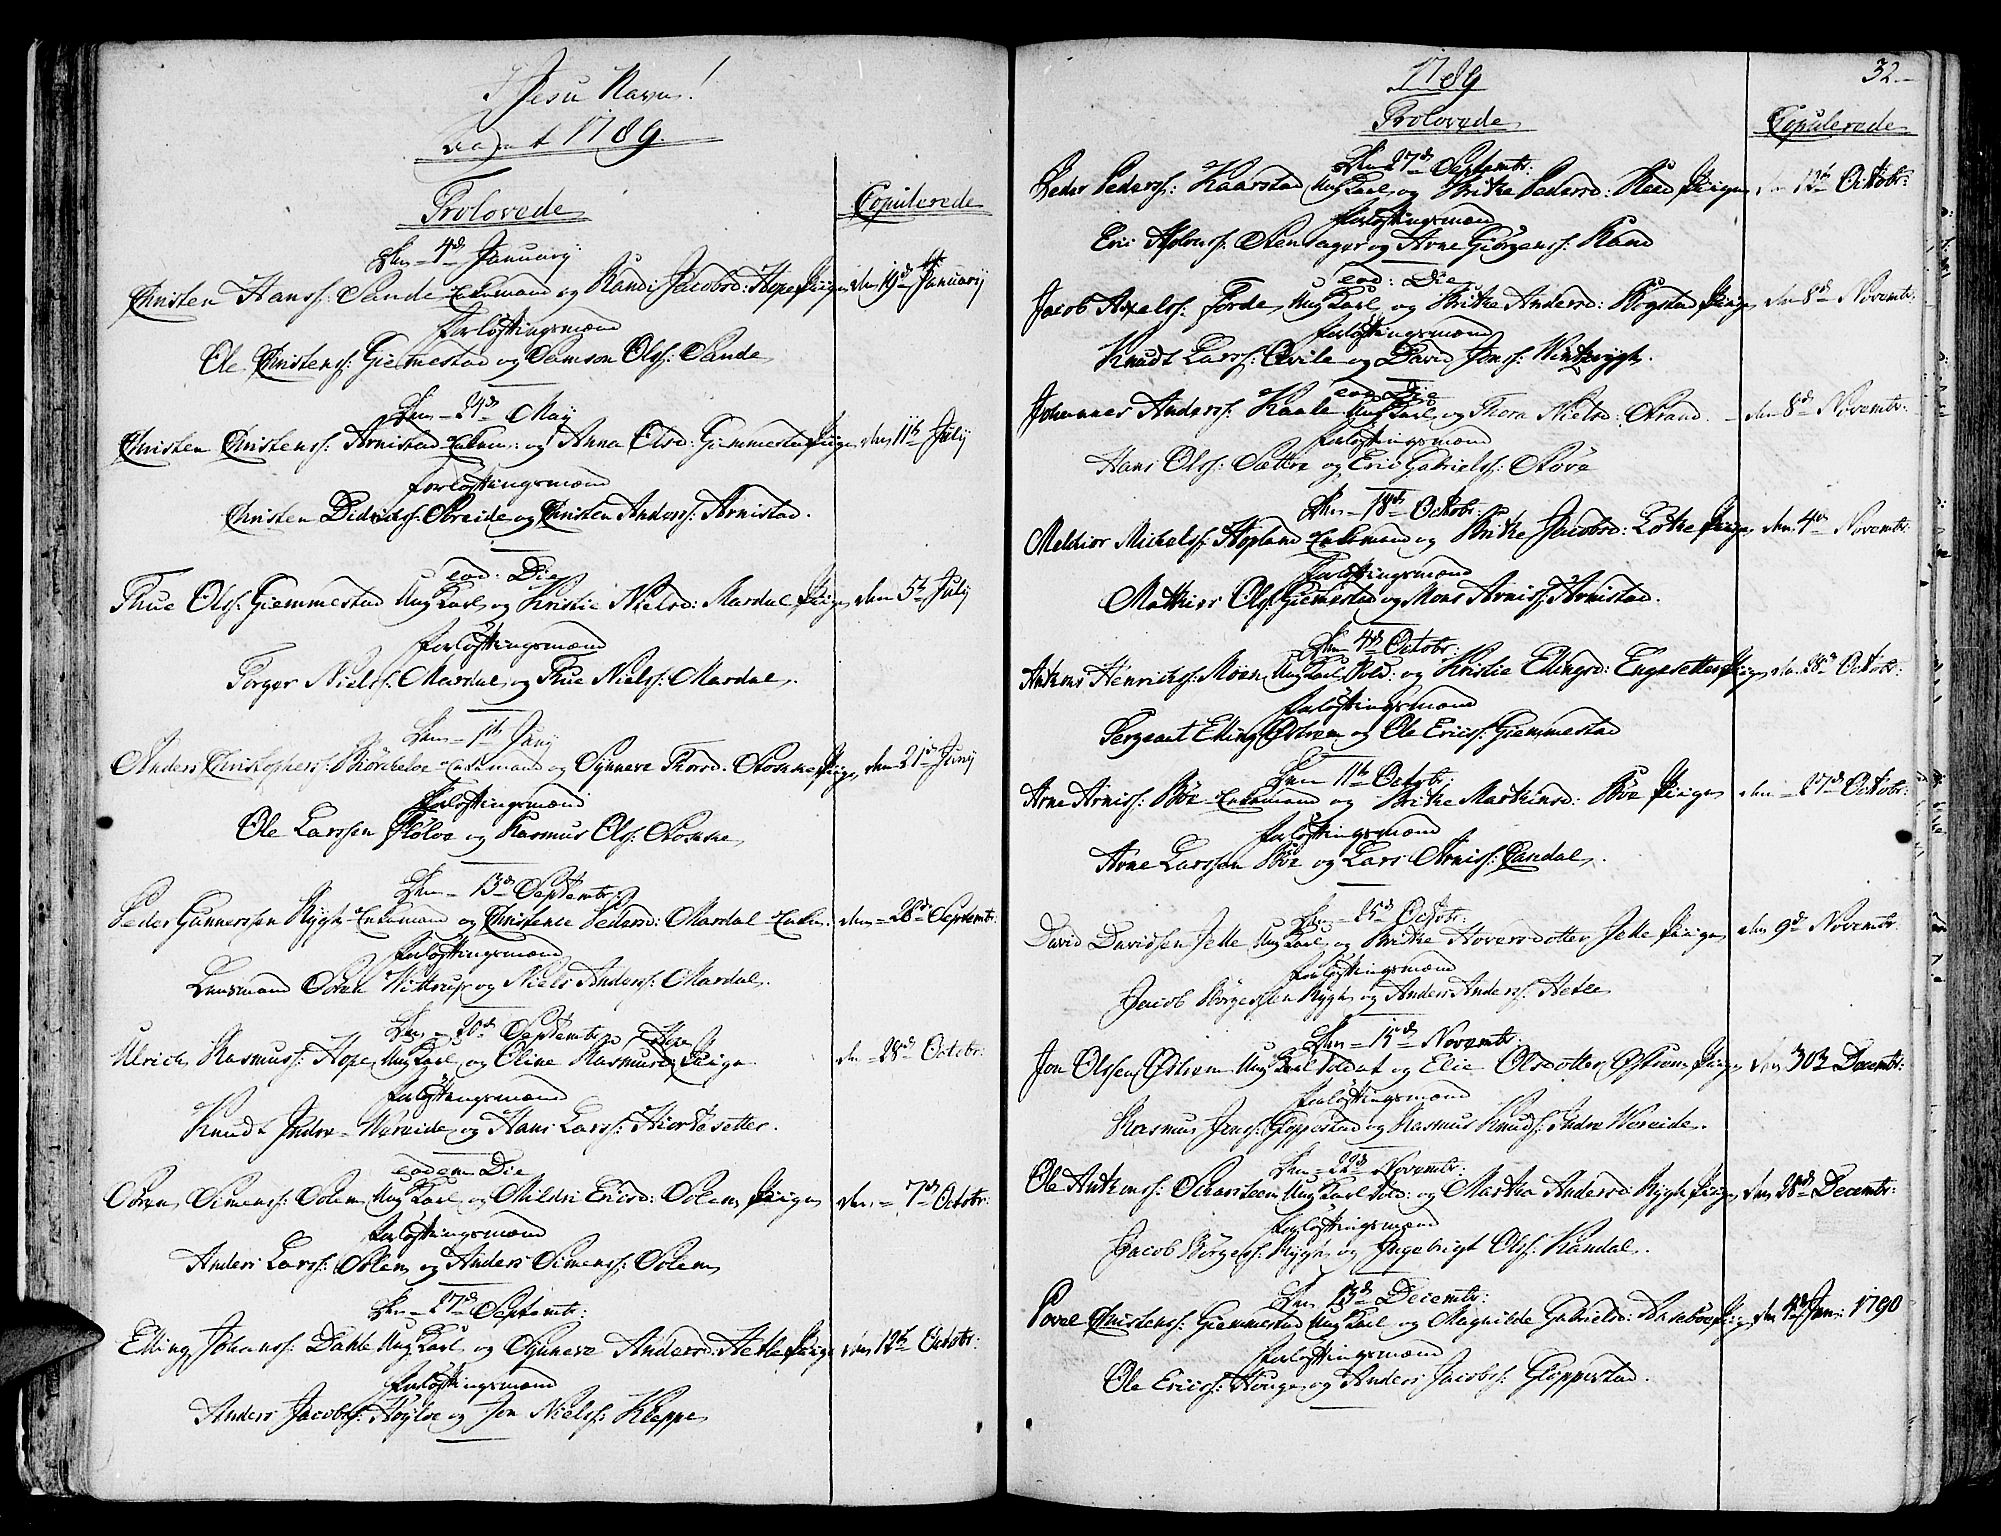 I Jesu Navn!
Aaret 1789.
Trolovede
Copulerede
den 4de Januarij
Christen Hanss: Sande Enkemand og Randi Jacobsd: Hope Pige den 19de Januarij
forlóftningsmænd
Ole Christenss: Giemmestad og Samson Olss: Sande
den 24de Maij
Christen Christenss: Arnistad Enkem: og Anna Olsd: Giemmestad Pige den 11te Julij
forlóftningsmænd
Christen Didrickss: Breide og Christen Anderss: Arnistad.
eod: Die
Thue Olss: Giemmestad Ung Karl og Kristie Nielsd: Mardal Pige den 5te Julij
forlóftningsmænd
Torger Nielss: Mardal og Thue Nielss: Mardal.
den 1te Junij
Anders Christopherss: Biörcheloe Enkemand og Synneve Thorsd: Somme Pige den 21de Junij
forlóftningsmænd
Ole Larssen Flólve og Rasmus Olss: Somme
den 13de Septembr:
Peder Gunnerssen Rygh Enkemand og Christence Pedersd: Mardal Enke. den 28de Septembr:
forlóftningsmænd
Lensmand Sören Wittrup og Niels Anderss: Mardal.
den 20de Septembr: Hope
Ulrich Rasmuss: Hope Ung Karl og Oline Rasmusd: Pige den 28de Octobr:
forlóftningsmænd
Knudt Indre-Wereide og Hans Larss: Hiortesetter.
eodem Die
Sören Simenss: Solem Ung Karl og Mildri Ericsd: Solem Pige den 7de Octobr:
forlóftningsmænd
Anders Larss: Solem og Anders Simenss: Solem
den 27de Septembr:
Elling Johanss: Dahle Ung Karl og Synneve Andersd: Hetle Pige den 12te Octobr:
forlóftningsmænd
Anders Jacobss: Höyloe og Jon Nielss: Kleppe
32.
1789
Trolovede
Copulerede
den 27de Septembr:
Peder Pederss: Kaarstad Ung Karl og Britke Pedersd: Reed Pige den 13te Octobr:
forlóftningsmænd
Eric Apolonss: Steensager og Arne Giörgenss: Rand
eod: Die
Jacob Axelss: Förde Ung Karl og Britke Andersd: Rygstad Pige den 8de Novembr:
forlóftningsmænd
Knudt Larss: Qvile og David Jonss: Wintervigh.
eod: Die
Johannes Anderss: Kaale Ung Karl og Thora Nielsd: Strand den 8de Novembr:
forlóftningsmænd
Hans Olss: Sættre og Eric Gabrielss: Róve
den 18de Octobr:
Melchior Michelss: Hopland Enkemand og Britke Jacobsd: Lotke Pige den 4de Novembr:
forlóftningsmænd
Mathies Olss: Giemestad og Mons Arniss: Arnistad.
den 4de Octobr:
Anthons Henrichss: Möen Ung Karl Sold: og Kristie Ellingsd: Engesetter Pige den 28de Octobr:
forlóftningsmænd
Sergeant Elling Östrem og Ole Ericss: Giemmestad
den 11te Octobr:
Arne Arniss: Böe Enkemand og Britke Marthinsd: Böe Pige den 27de Octobr:
forlóftningsmænd
Arne Larssen Böe og Lars Arniss: Sandal.
den 25de Octobr:
David Davidssen Jelle Ung Karl og Britke Hoversdotter Jelle Pige den 9de Novembr:
forlóftningsmænd
Jacob Börgessen Rygh og Anders Anderss: Hetle
den 15de Novembr:
Jon Olssen Östrem Ung Karl Soldat og Elie Olsdotter Östrem Pige den 30te Decembr:
forlóftningsmænd
Rasmus Jenss: Gloppestad og Rasmus Knudss: Indre Wereide.
den 22de Novembr:
Ole Anthonss: Scharsteen Ung Karl Sold: og Martha Andersd: Rygh Pige den 28de Decembr:
forlóftningsmænd
Jacob Börgess: Rygh og Ingebrigt Olss: Kandal.
den 13de Decembr:
Povel Christenss: Giemmestad Ung Karl og Magnilde Gabrielsd: Aaseböe Pige den 4de Jan: 1790
forlóftningsmænd
Ole Ericss: Houge og Anders Jacobss: Gloppestad.